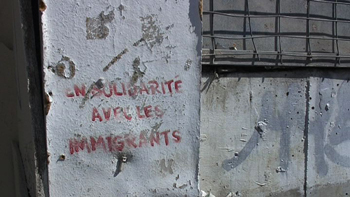 EN SOLIDARITÉ
AVEC LES
IMMIGRANTS